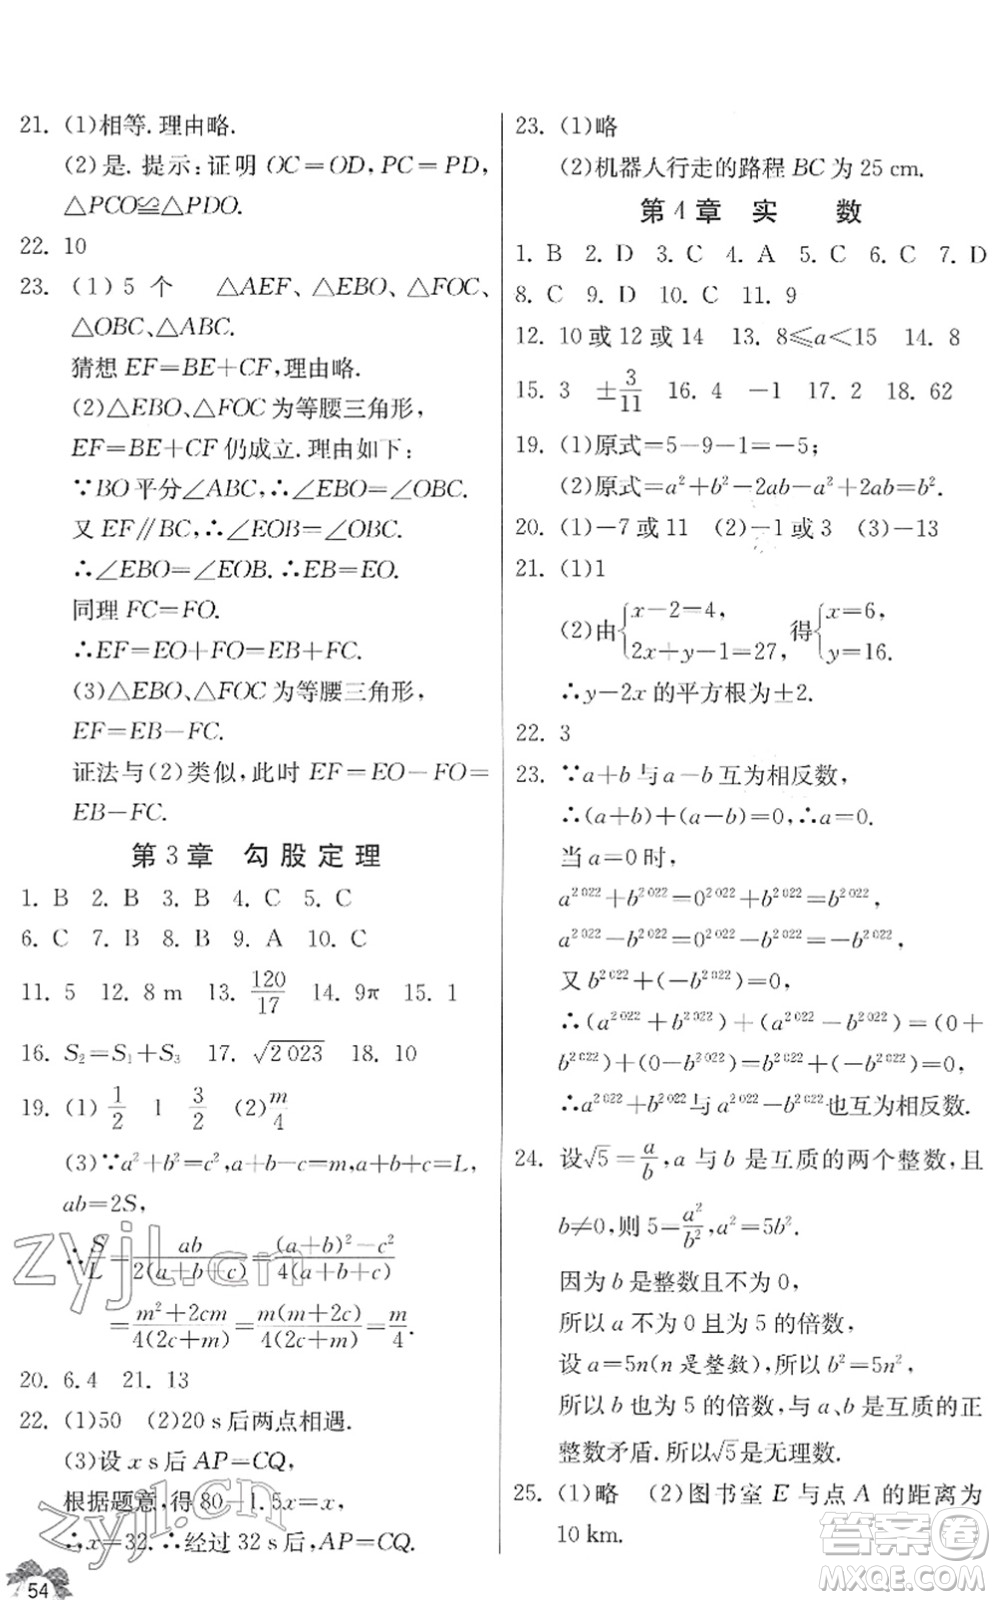 21. (1)相等.理由略.
(2)是.提示:证明 OC=OD,PC=PD,
△PCO≌△PDO.
22. 10
23. (1)5个 △AEF、△EBO、△FOC、
△OBC、△ABC.
猜想 EF=BE+CF,理由略.
(2)△EBO、△FOC 为等腰三角形,
EF=BE+CF 仍成立.理由如下:
∵BO平分∠ABC,∴∠EBO=∠OBC.
又 EF∥BC,∴∠EOB=∠OBC.
∴∠EBO=∠EOB.∴EB=EO.
同理 FC=FO.
∴EF=EO+FO=EB+FC.
(3)△EBO、△FOC 为等腰三角形,
EF=EB-FC.
证法与(2)类似,此时 EF=EO-FO=
EB-FC.
第3章 勾股定理
1. B 2. B 3. B 4. C 5. C
6. C 7. B 8. B 9. A 10. C
11. 5 12. 8 m 13. 120/17 14. 9π 15. 1
16. S₂=S₁+S₃ 17. √2 023 18. 10
19. (1) 1/2 1 3/2 (2) m/4
(3)∵a²+b²=c²,a+b-c=m,a+b+c=L,
ab=2S,
∴S/L=ab/2(a+b+c)=(a+b)²-c²/4(a+b+c)
=m²+2cm/4(2c+m)=m(m+2c)/4(2c+m)=m/4.
20. 6.4 21. 13
22. (1)50 (2)20 s后两点相遇.
(3)设 x s后 AP=CQ,
根据题意,得 80-1.5x=x,
∴x=32.∴经过 32 s后,AP=CQ.
54
23. (1)略
(2)机器人行走的路程 BC 为 25 cm.
第4章 实 数
1. B 2. D 3. C 4. A 5. C 6. C 7. D
8. C 9. D 10. C 11. 9
12. 10或12或14 13. 8≤a<15 14. 8
15. 3 ±3/11 16. 4 -1 17. 2 18. 62
19. (1)原式=5-9-1=-5;
(2)原式=a²+b²-2ab-a²+2ab=b².
20. (1)-7或11 (2)-1或3 (3)-13
21. (1)1
(2)由{x-2=4, 2x+y-1=27, 得{x=6, y=16.
∴y-2x 的平方根为±2.
22. 3
23. ∵a+b 与 a-b 互为相反数,
∴(a+b)+(a-b)=0,∴a=0.
当 a=0 时,
a²⁰²²+b²⁰²²=0²⁰²²+b²⁰²²=b²⁰²²,
a²⁰²²-b²⁰²²=0²⁰²²-b²⁰²²=-b²⁰²²,
又 b²⁰²²+(-b²⁰²²)=0,
∴(a²⁰²²+b²⁰²²)+(a²⁰²²-b²⁰²²)=(0+
b²⁰²²)+(0-b²⁰²²)=b²⁰²²+(-b²⁰²²)=0,
∴a²⁰²²+b²⁰²²与a²⁰²²-b²⁰²²也互为相反数.
24. 设√5=a/b,a 与 b 是互质的两个整数,且
b≠0,则 5=a²/b²,a²=5b².
因为 b 是整数且不为 0,
所以 a 不为 0 且为 5 的倍数,
设 a=5n(n 是整数),所以 b²=5n²,
所以 b 也为 5 的倍数,与 a、b 是互质的正
整数矛盾.所以√5是无理数.
25. (1)略 (2)图书室 E 与点 A 的距离为
10 km.
zyjl.cn
zyjl.cn
答案圈
MXQE.COM